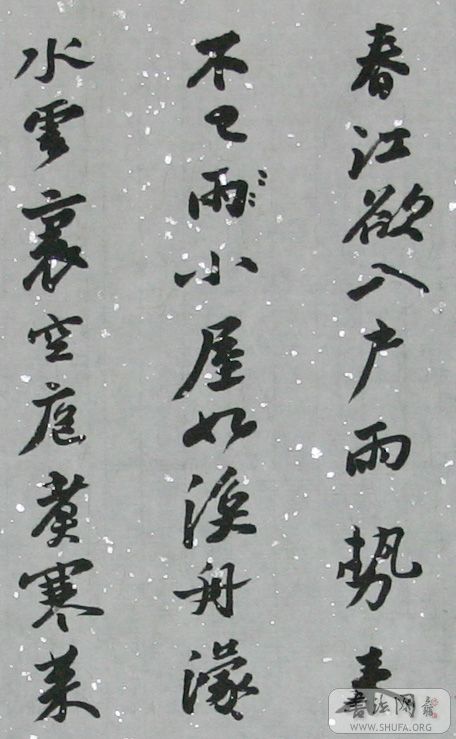 春江欲入户雨勢来
不已雨小屋如漁舟濛
水雲裏空庖煮寒菜
書法网
WWW.SHUFA.ORG